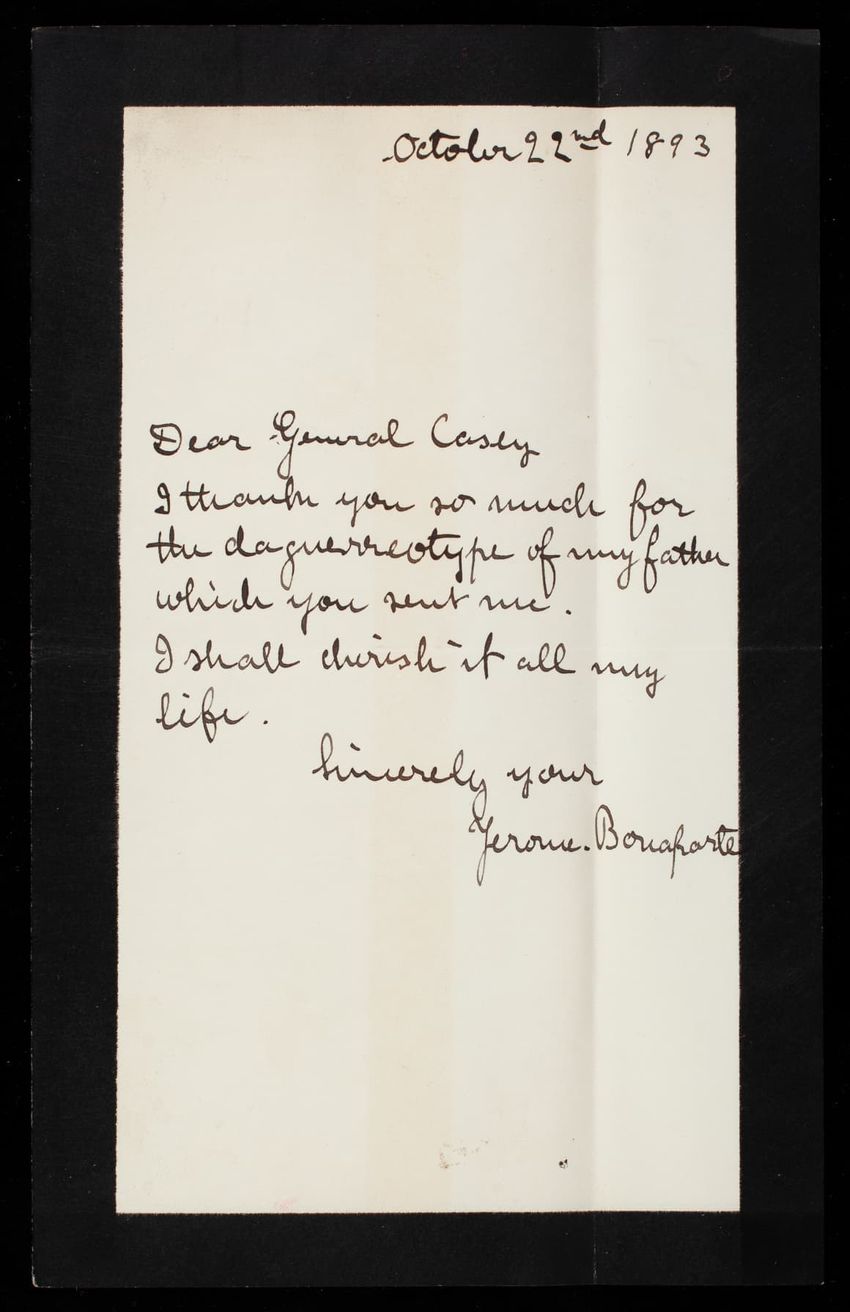 October 22nd 1893
Dear General Casey
I thank you so much for
the daguerreotype of my father
which you sent me.
I shall cherish it all my
life.
Sincerely your
Jerome. Bonaparte